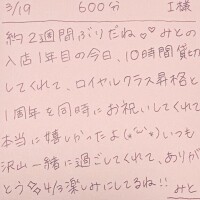 3/19 600分 I様
約2週間ぶりだね♡みとの
入店1年目の今日、10時間貸切
してくれて、ロイヤルクラス昇格と
1周年を同時にお祝いしてくれて
本当に嬉しかったよ(*˘︶˘*)いつも
沢山一緒に過ごしてくれて、ありが
とう✨4/3楽しみにしてるね!! みと